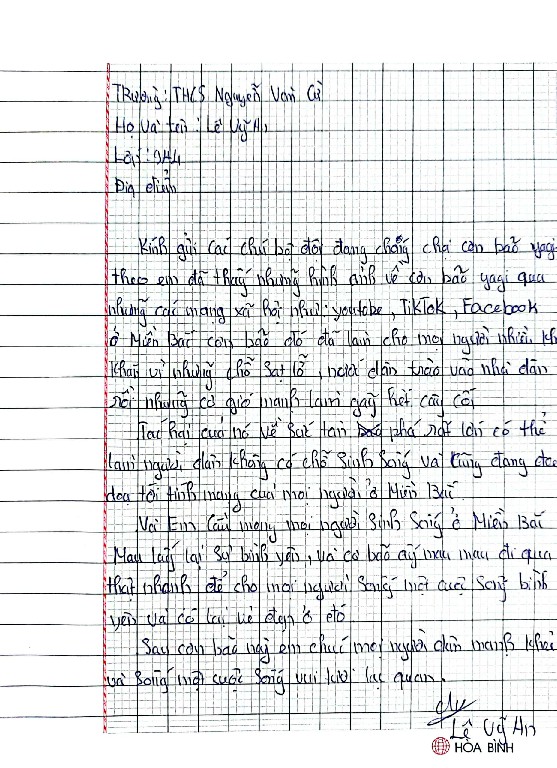 Trường: THCS Nguyễn Văn Cừ
Họ và tên: Lê Vỹ An
Lớp: 9A4
Địa điểm
Kính gửi các chú bộ đội đang chống chọi cơn bão yagi
theo em đã thấy những hình ảnh về cơn bão yagi qua
những các mạng xã hội như: youtube, TikTok, Facebook
ở Miền Bắc cơn bão đó đã làm cho mọi người nhiều kh
khăn vì những chỗ sạt lỡ, nước dân trào vào nhà dân
rồi những cơ gió mạnh làm gãy hết cây cối
Tác hại của nó về sức tàn phá rất lớn có thể
làm người dân không có chỗ sinh sống và cũng đang đe
dọa tới tính mạng của mọi người ở Miền Bắc
Và Em cầu mong mọi người sinh sống ở Miền Bắc
Mau lấy lại sự bình yên, và cơ bão ấy mau mau đi qua
thật nhanh để cho mọi người sống một cuộc sống bình
yên và có lại vẻ đẹp ở đó
Sau cơn bão này em chúc mọi người dân mạnh khỏe
và sống một cuộc sống vui tươi lạc quan.
Lê Vỹ An
HÒA BÌNH